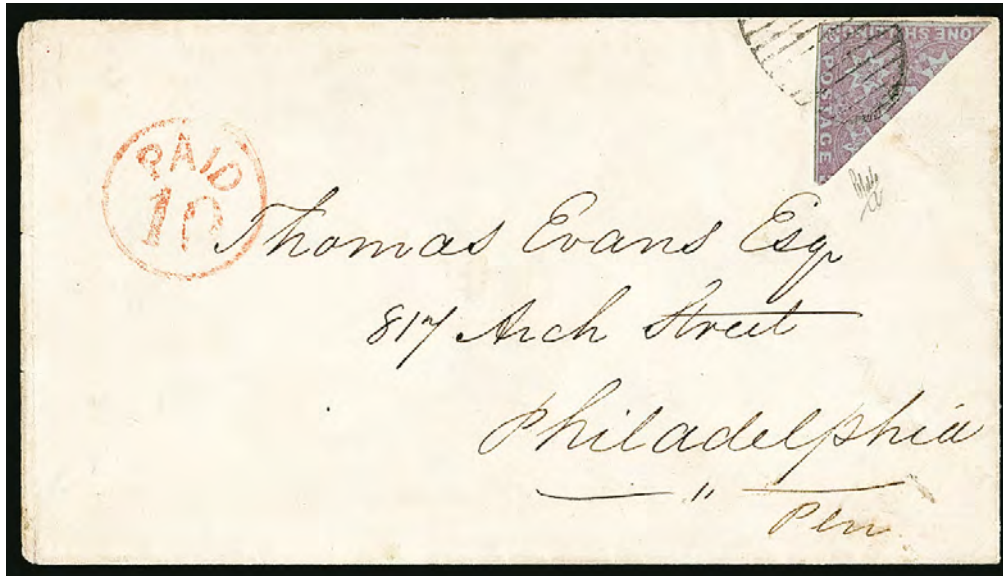 ONE SH
POSTAGE
PAID
10
Thomas Evans Esq.
817 Arch Street
Philadelphia
"
Pen